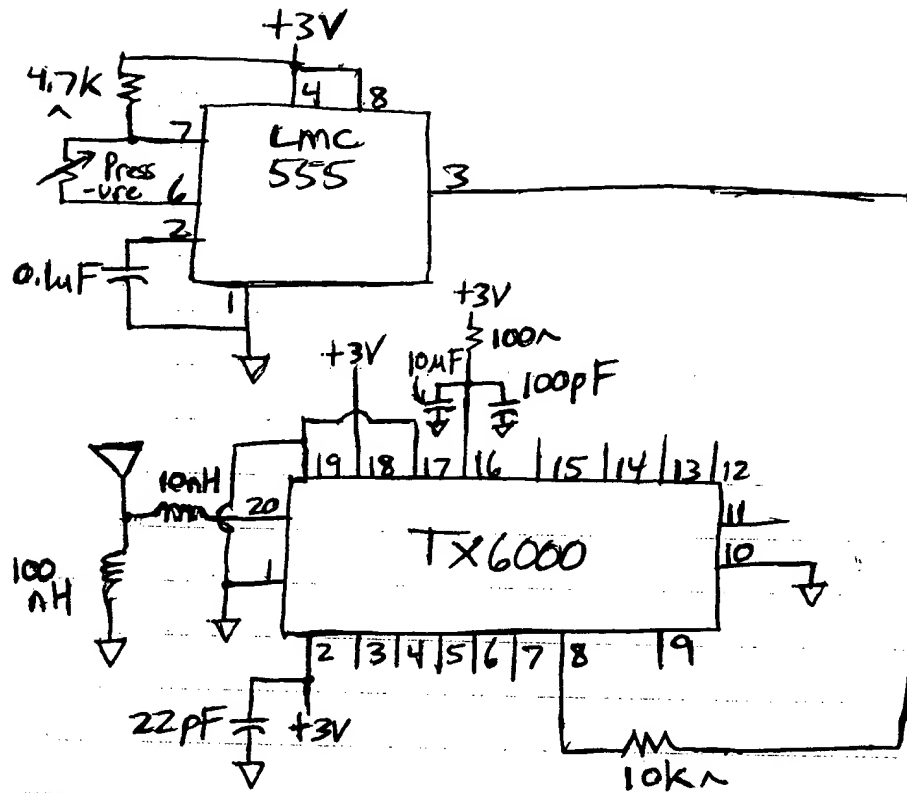 +3V
4.7K
4
8
LMC
555
7
Press
-ure
6
3
2
0.1uF
1
+3V
100Ω
+3V
10μF
100pF
19
18
17
16
15
14
13
12
10nH
20
11
TX6000
10
100
nH
1
2
3
4
5
6
7
8
9
22pF
+3V
10KΩ